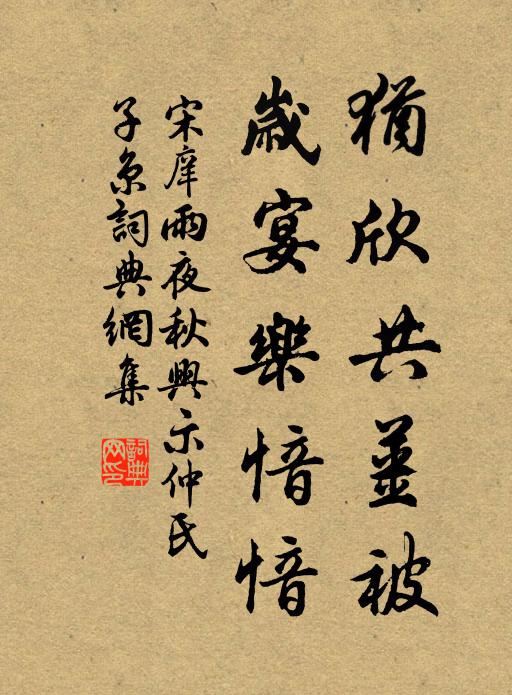 猶欣共薑被
歲宴樂愔愔
宋庠雨夜秋興示仲氏
子京詞典網集
詞典網印